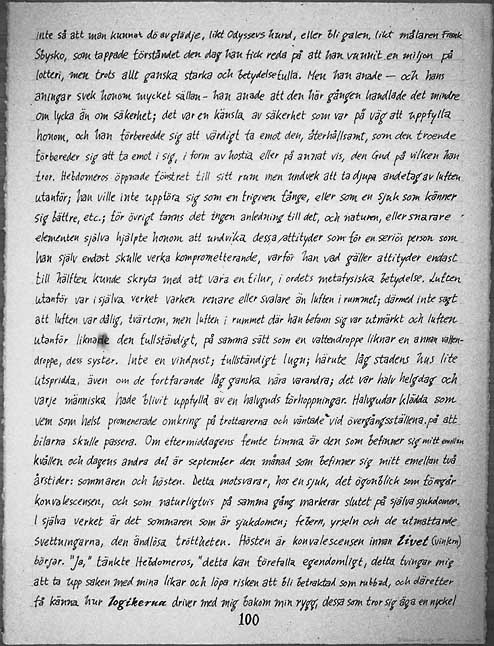 inte så att man kunnat dö av glädje, likt Odyssevs hund, eller bli galen, likt målaren Frank
Sbysko, som tappade förståndet den dag han fick reda på att han vunnit en miljon på
lotteri, men trots allt ganska starka och betydelsefulla. Men han anade – och hans
aningar svek honom mycket sällan – han anade att den här gången handlade det mindre
om lycka än om säkerhet; det var en känsla av säkerhet som var på väg att uppfylla
honom, och han förberedde sig att värdigt ta emot den, återhållsamt, som den troende
förbereder sig att ta emot i sig, i form av hostia eller på annat vis, den Gud på vilken han
tror. Hebdomeros öppnade fönstret till sitt rum men undvek att ta djupa andetag av luften
utanför; han ville inte uppföra sig som en frigiven fånge, eller som en sjuk som känner
sig bättre, etc.; för övrigt fanns det ingen anledning till det, och naturen, eller snarare
elementen själva hjälpte honom att undvika dessa attityder som för en seriös person som
han själv endast skulle verka komprometterande, varför han vad gäller attityder endast
till hälften kunde skryta med att vara en filur, i ordets metafysiska betydelse. Luften
utanför var i själva verket varken renare eller svalare än luften i rummet; därmed inte sagt
att luften var dålig, tvärtom, men luften i rummet där han befann sig var utmärkt och luften
utanför liknade den fullständigt, på samma sätt som en vattendroppe liknar en annan vatten-
droppe, dess syster. Inte en vindpust; fullständigt lugn; härute låg stadens hus lite
utspridda, även om de fortfarande låg ganska nära varandra; det var halv helgdag och
varje människa hade blivit uppfylld av en halvguds förhoppningar. Halvgudar klädda som
vem som helst promenerade omkring på trottoarerna och väntade vid övergångsställena, på att
bilarna skulle passera. Om eftermiddagens femte timma är den som befinner sig mitt emellan
kvällen och dagens andra del är september den månad som befinner sig mitt emellan två
årstider: sommaren och hösten. Detta motsvarar, hos en sjuk, det ögonblick som föregår
konvalescensen, och som naturligtvis på samma gång markerar slutet på själva sjukdomen.
I själva verket är det sommaren som är sjukdomen; febern, yrseln och de utmattande
svettningarna, den ändlösa tröttheten. Hösten är konvalescensen innan livet (vintern)
börjar. "Ja," tänkte Hebdomeros, "detta kan förefalla egendomligt, detta tvingar mig
att ta upp saken med mina likar och löpa risken att bli betraktad som rubbad, och därefter
få känna hur logikerna driver med mig bakom min rygg, dessa som tror sig äga en nyckel
100